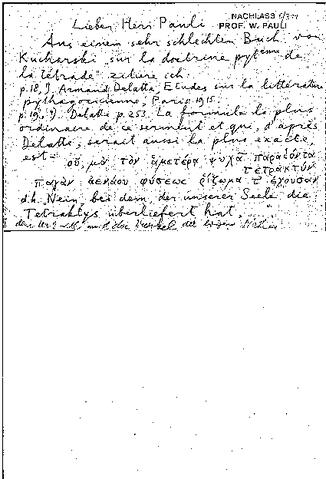 NACHLASS
PROF. W. PAULI
Lieber Herr Pauli
Aus einem sehr schlechten Buch von
Kucharski sur la doctrine pyt énne de
la tétrade zitiere ich.
p.18, J. Armand Delatte, Etudes sur la littérature
pythagoricienne, Paris 1915.
p.19, J. Delatte p.253. La formule la plus
ordinaire de ce serment et qui, d'après
Delatte, serait aussi la plus exacte,
est
οὐ, μὰ τὸν ἁμετέρᾳ ψυχᾷ παραδόντα
τετρακτύν
παγὰν ἀενάου φύσεως ῥίζωμα τ' ἔχουσαν
d.h. Nein, bei dem, der unserer Seele die
Tetraktys überliefert hat,
die